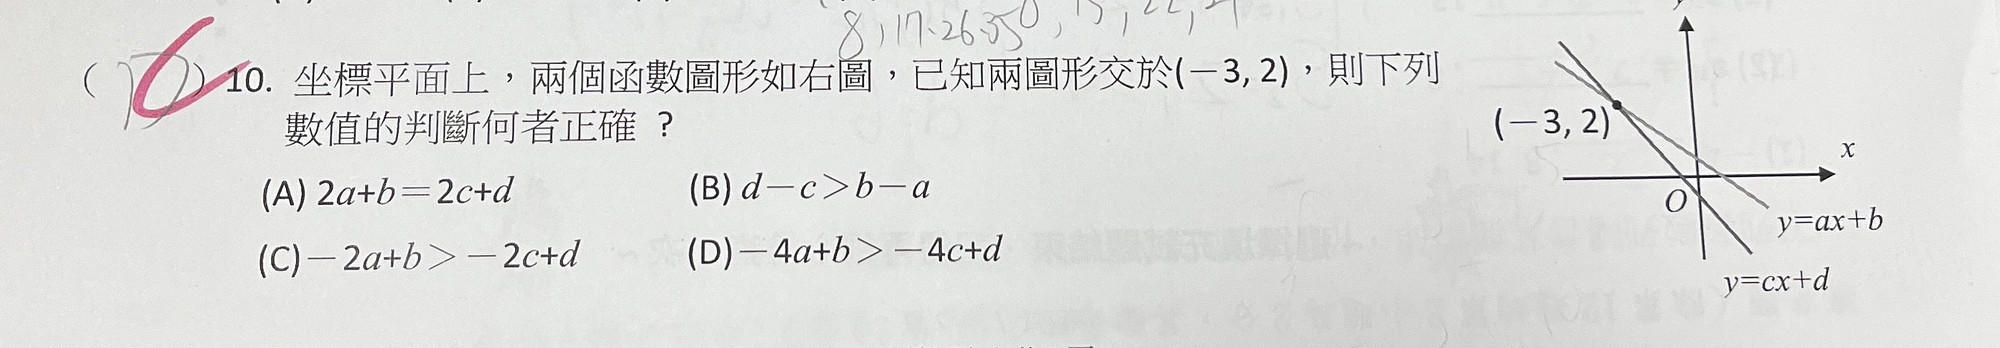 8,17.26.35
( D ) 10. 坐標平面上，兩個函數圖形如右圖，已知兩圖形交於(－3, 2)，則下列
數值的判斷何者正確 ?
(A) 2a+b＝2c+d (B) d－c＞b－a
(C)－2a+b＞－2c+d (D)－4a+b＞－4c+d
y
(－3, 2)
x
O
y=ax+b
y=cx+d